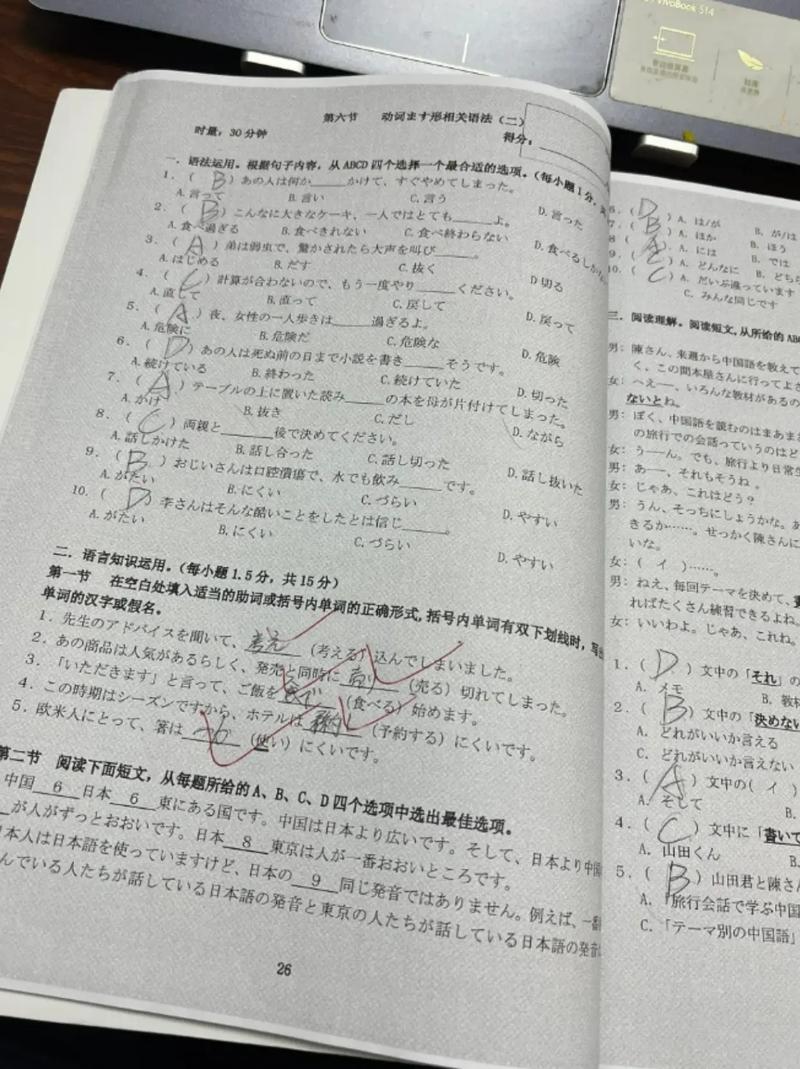 VivoBook S14
第六节 动词ます形相关语法（二）
时量：30分钟 得分：
一．语法运用。根据句子内容，从ABCD四个选择一个最合适的选项。（每小题1分，
1．（ B ）あの人は何か____かけて、すぐやめてしまった。
A. 言って B. 言い C. 言う D. 言った
2．（ B ）こんなに大きなケーキ、一人ではとても____よ。
A. 食べ過ぎる B. 食べきれない C. 食べ終わらない D. 食べるしか
3．（ A ）弟は弱虫で、驚かされたら大声を叫び____。
A. はじめる B. だす C. 抜く D 切る
4．（ C ）計算が合わないので、もう一度やり____ください。
A. 直して B. 直って C. 戻して D. 戻って
5．（ A ）夜、女性の一人歩きは____過ぎるよ。
A. 危険に B. 危険だ C. 危険な D. 危険
6．（ D ）あの人は死ぬ前の日まで小説を書き____そうです。
A. 続けている B. 終わった C. 続けていた D. 切った
7．（ A ）テーブルの上に置いた読み____の本を母が片付けてしまった。
A. かけ B. 抜き C. だし D. ながら
8．（ C ）両親と____後で決めてください。
A. 話しかけた B. 話し合った C. 話し切った D. 話し抜いた
9．（ B ）おじいさんは口腔潰瘍で、水でも飲み____です。
A. がたい B. にくい C. づらい D. やすい
10．（ D ）李さんはそんな酷いことをしたとは信じ____。
A. がたい B. にくい C. づらい D. やすい
二．语言知识运用。（每小题1.5分，共15分）
第一节 在空白处填入适当的助词或括号内单词的正确形式，括号内单词有双下划线时，写出
单词的汉字或假名。
1．先生のアドバイスを聞いて、考え（考える）込んでしまいました。
2．あの商品は人気があるらしく、発売と同時に売り（売る）切れてしまった。
3．「いただきます」と言って、ご飯を____（食べる）始めます。
4．この時期はシーズンですから、ホテルは____（予約する）にくいです。
5．欧米人にとって、箸は____（使い）にくいです。
第二节 阅读下面短文，从每题所给的A、B、C、D四个选项中选出最佳选项。
中国 6 日本 6 東にある国です。中国は日本より広いです。そして、日本より中国
が人がずっとおおいです。日本 8 東京は人が一番おおいところです。
本人は日本語を使っていますけど、日本の 9 同じ発音ではありません。例えば、一番
んでいる人たちが話している日本語の発音と東京の人たちが話している日本語の発音
26
6．（ D ）A. は/が B. が/は
7．（ B ）A. ほか B. ほう
8（ ）A. には B. では
9．（ ）A. どんなに B. どちら
10．（ C ）A. だいぶ違っています
C. みんな同じです
三．阅读理解。阅读短文，从所给的ABC
男：陳さん、来週から中国語を教えて
く、この間本屋さんに行ってよさ
女：へえー、いろんな教材があるの
ないとね。
男：ぼく、中国語を読むのはまあまあ
の旅行での会話っていうのはど
女：うーん。でも、旅行より日常生
男：あー、それもそうね。
女：じゃあ、これはどう？
男：うん、そっちにしょうかな。あ
きるか……。せっかく陳さんに
いな。
女：（ イ ）……。
男：ねえ、毎回テーマを決めて、書
ればたくさん練習できるよね。
女：いいわよ。じゃあ、これね。
1．（ D ）文中の「それ」の
A. メモ B. 教材
2．（ B ）文中の「決めない
A. どれがいいか言える
C. どれがいいか言えない
3．（ A ）文中の（ イ ）
A. そして B.
4．（ C ）文中に「書いて
A. 山田くん B.
5．（ B ）山田君と陳さん
A. 「旅行会話で学ぶ中国
C. 「テーマ別の中国語」